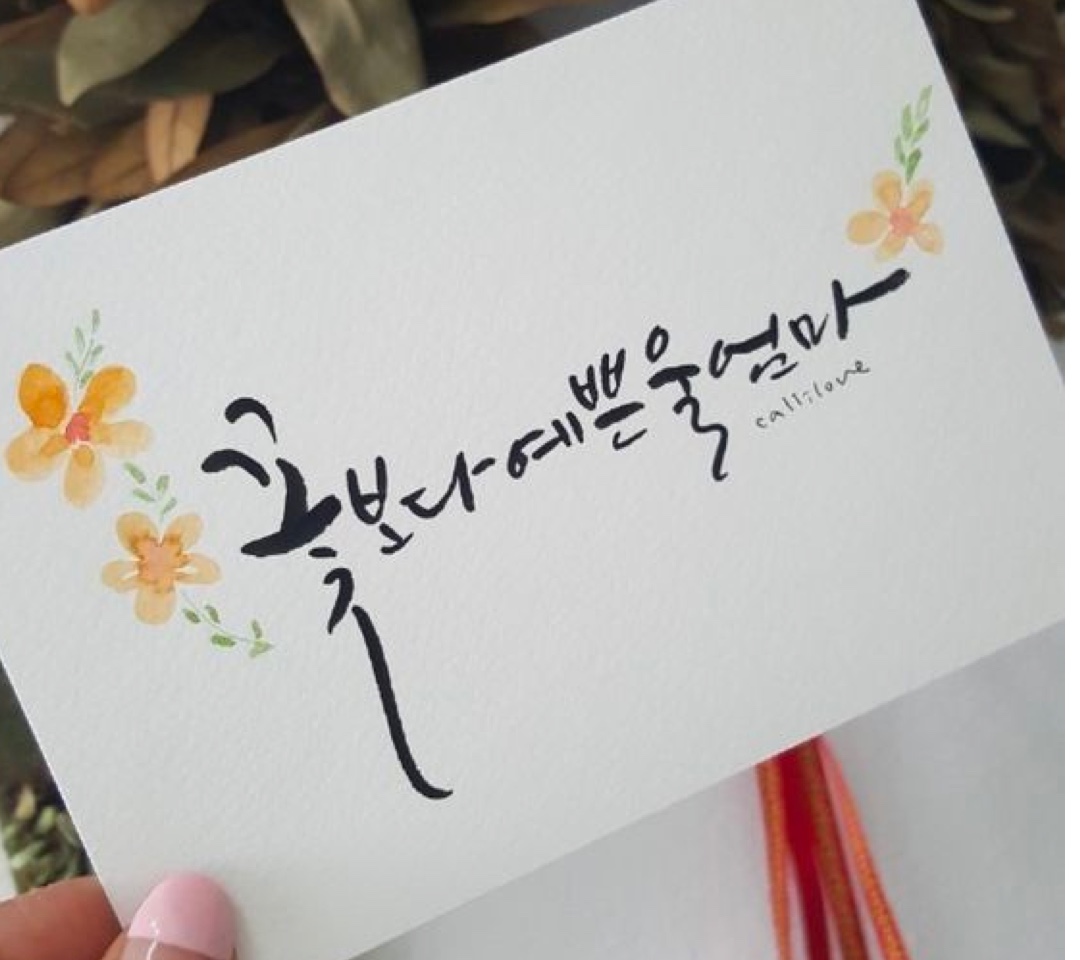 꽃보다예쁜울엄마
callilove